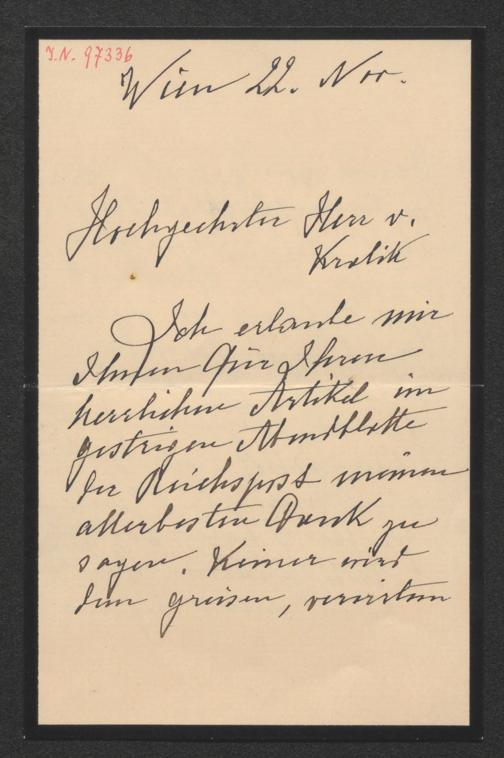 I.N. 97336
Wien 22. Nov.
Hochgeehrter Herr v.
Kralik
Ich erlaube mir
Ihnen für Ihren
herrlichen Artikel im
gestrigen Abendblatte
der Reichspost meinen
allerbesten Dank zu
sagen. Keiner wird
dem greisen, verewigten